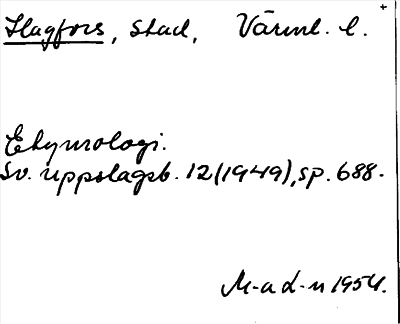 Hagfors, stad, Värml. l.
Etymologi.
Sv. uppslagsb. 12(1949), sp. 688.
M-a d-n 1954.